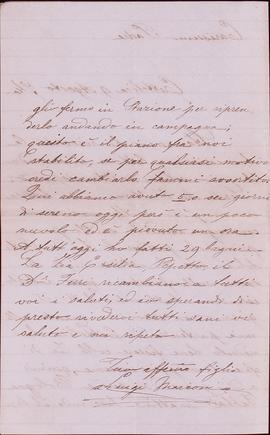 gli fermo in Stazione per ripren
derlo andando in campagna;
questo è il piano fra noi
stabilito, se per qualsiasi motivo
credi cambiarlo fammi avvertito
Qui abbiamo avuto 5 o sei giorni
di sereno oggi però è un poco
nuvolo ed è piovuto un ora
A tutt'oggi ho fatti 29 bagni
La Zia Ersilia, Repetto, il
Dr Ferri ricambiano a tutti
voi i saluti, ed io sperando di
presto rivedervi tutti sani vi
saluto e mi ripeto
Tuo affmo figlio
Luigi